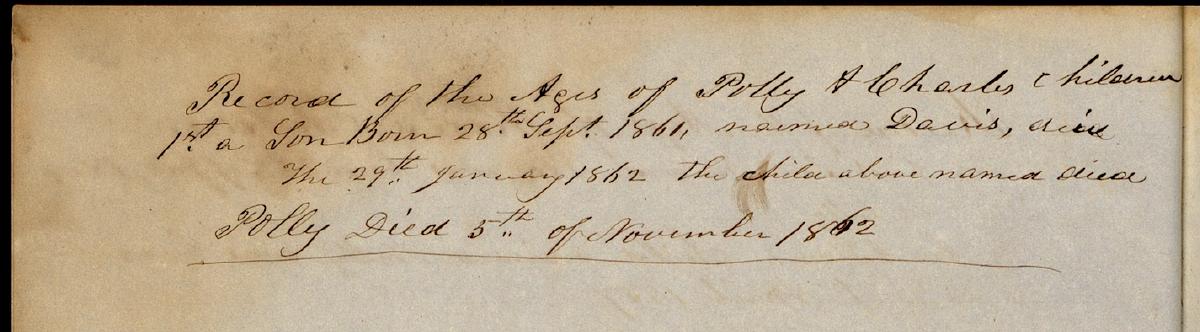 Record of the Ages of Polly & Charles Children
1st a Son Born 28th Sept. 1861, named Davis, died
The 29th January 1862 the child above named died
Polly Died 5th of November 1862